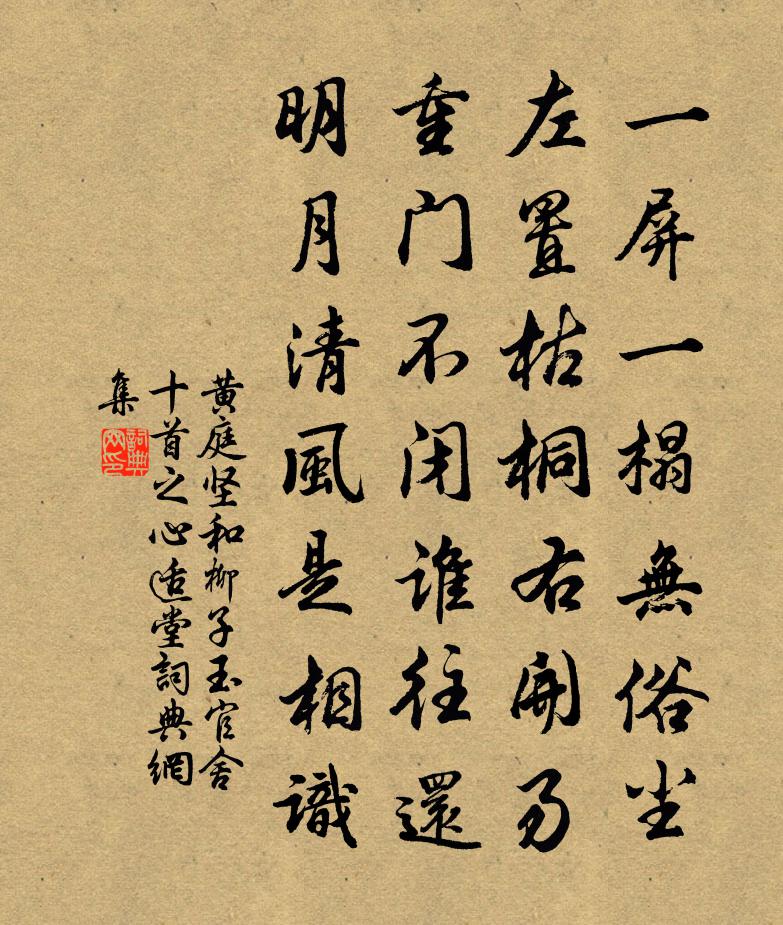 一屏一榻無俗尘
左置枯桐右開易
重门不闭誰往還
明月清風是相識
黄庭坚和柳子玉官舍
十首之心适堂詞典網
集
詞典网印